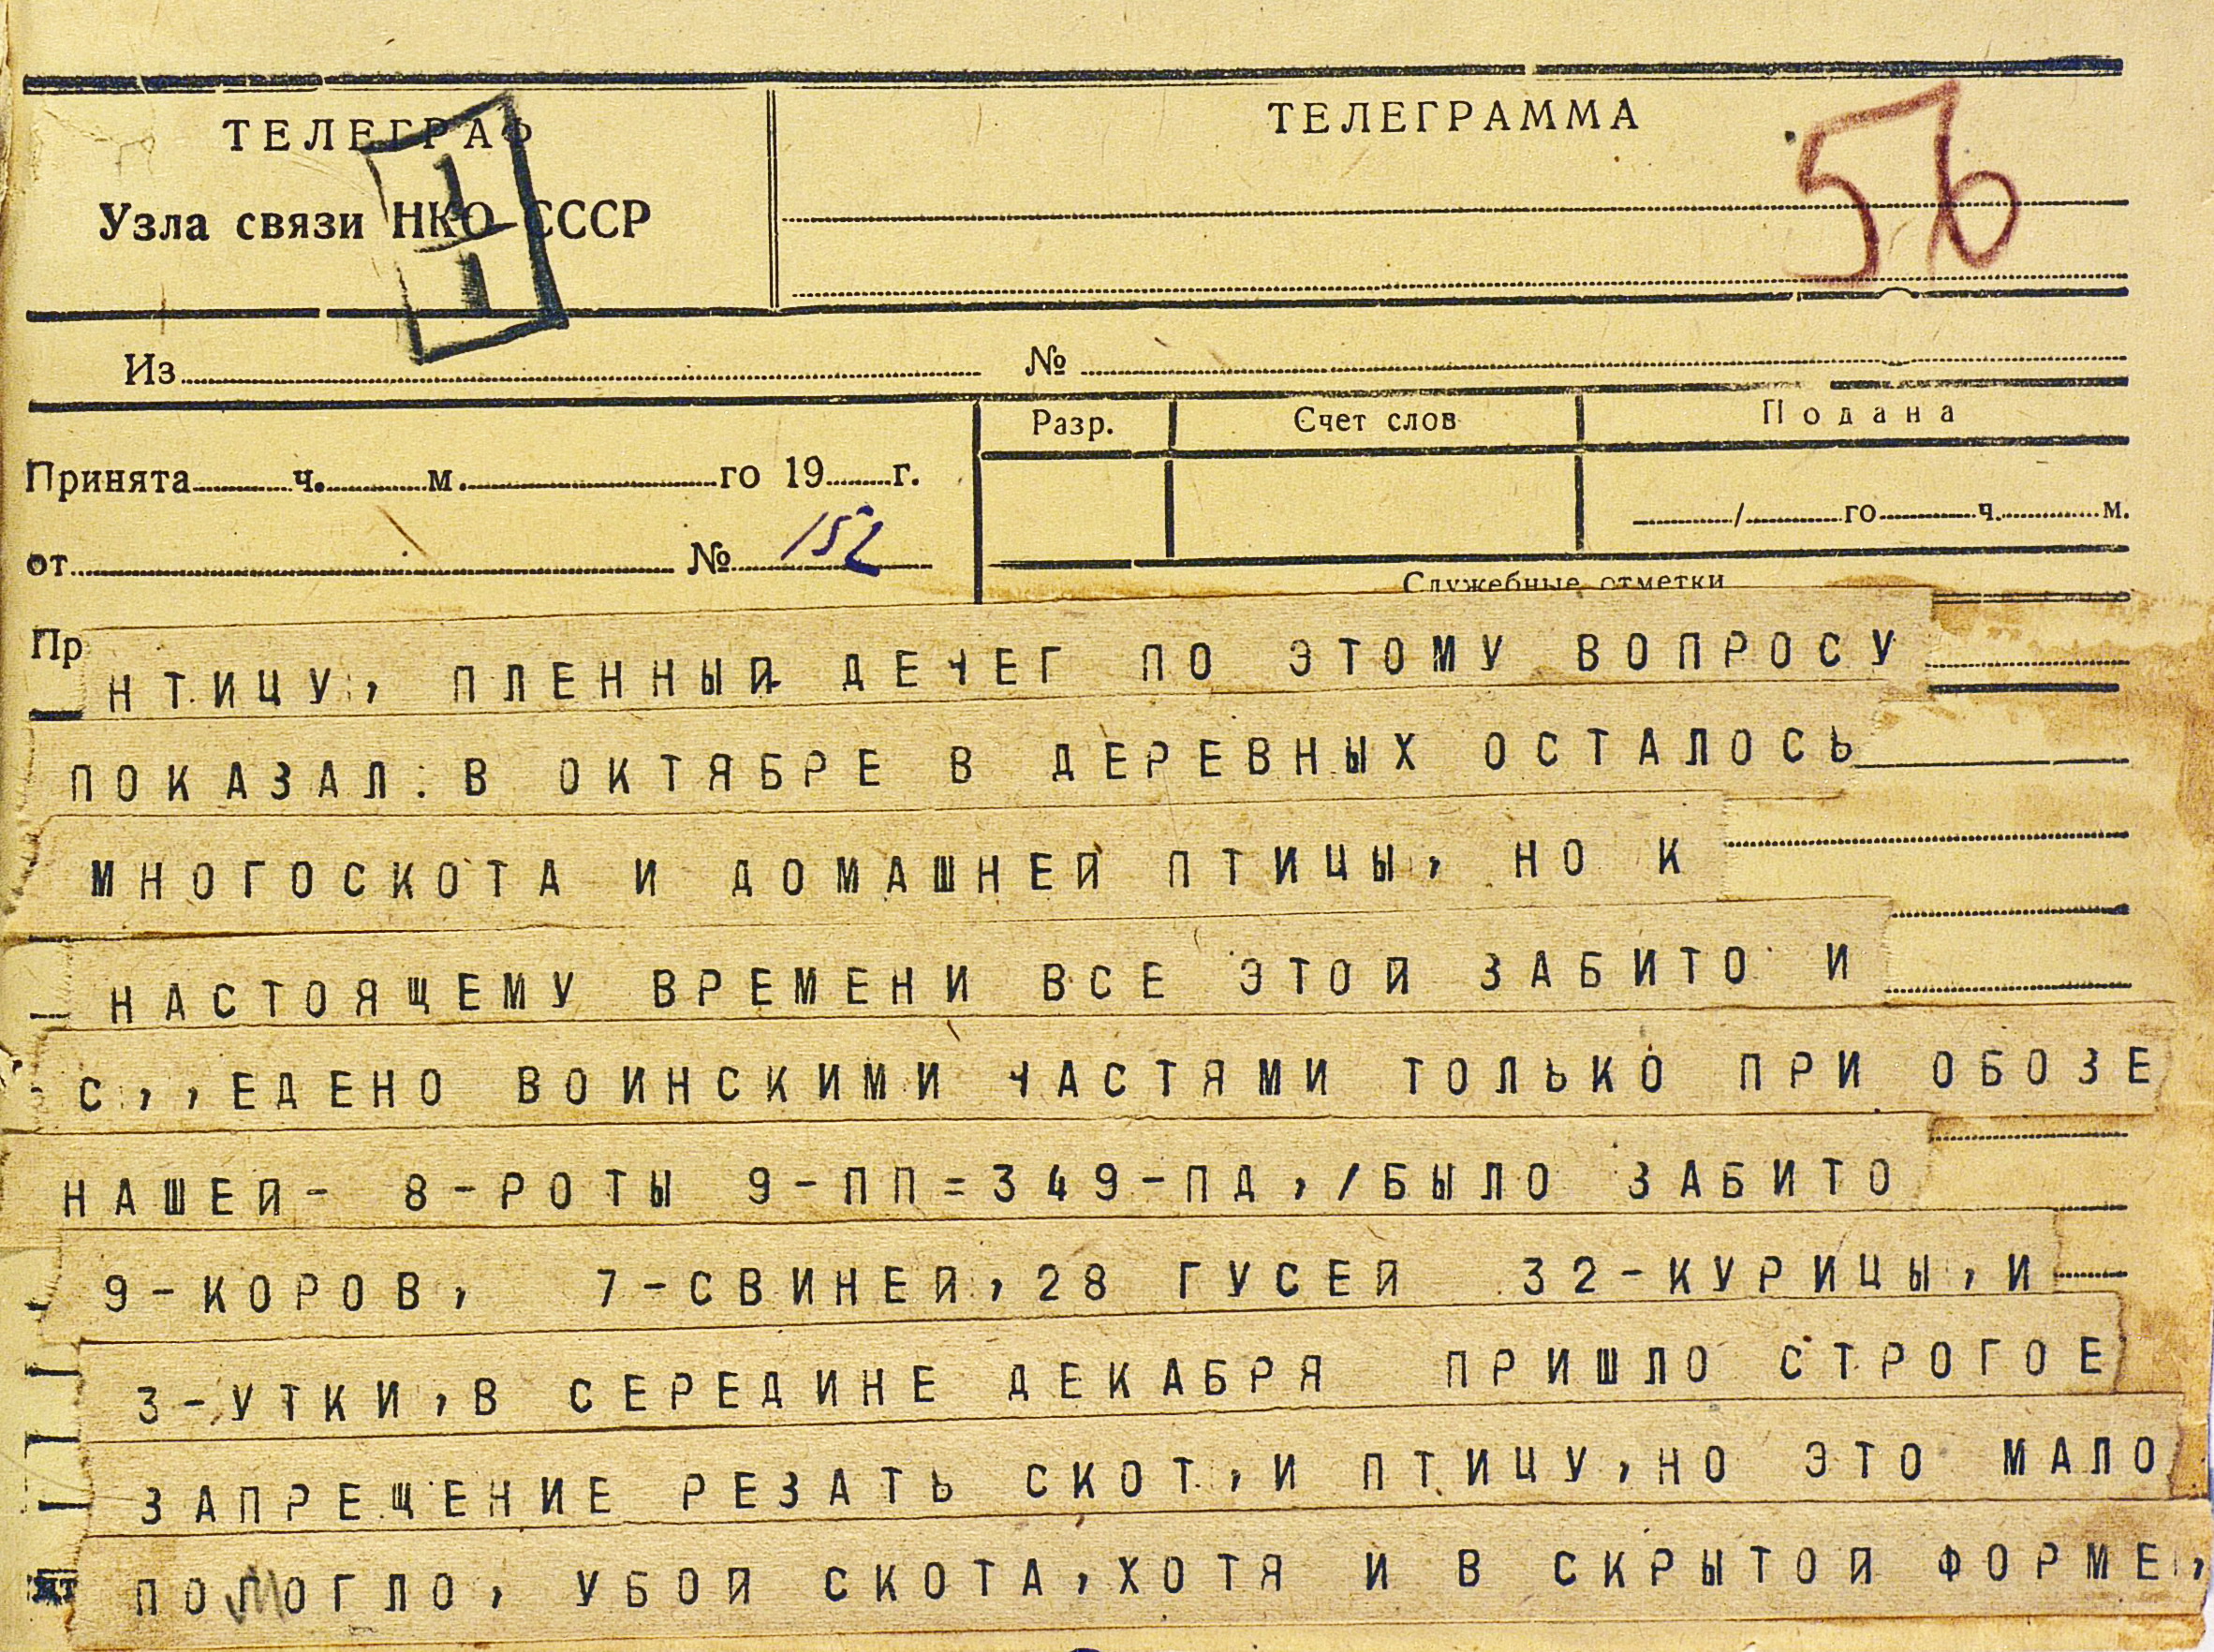 ТЕЛЕГРАФ
Узла связи НКО СССР
1
1
ТЕЛЕГРАММА
56
Из № 
Принята ч. м. го 19 г.
от № 152
Разр. Счет слов Подана
/ го ч. м.
Служебные отметки
Пр
НТИЦУ, ПЛЕННЫЙ ДЕЧЕГ ПО ЭТОМУ ВОПРОСУ
ПОКАЗАЛ: В ОКТЯБРЕ В ДЕРЕВНЫХ ОСТАЛОСЬ
МНОГОСКОТА И ДОМАШНЕЙ ПТИЦЫ, НО К
НАСТОЯЩЕМУ ВРЕМЕНИ ВСЕ ЭТОЙ ЗАБИТО И
С,,ЕДЕНО ВОИНСКИМИ ЧАСТЯМИ ТОЛЬКО ПРИ ОБОЗЕ
НАШЕЙ- 8-РОТЫ 9-ПП=349-ПД,/БЫЛО ЗАБИТО
9-КОРОВ, 7-СВИНЕЙ,28 ГУСЕЙ 32-КУРИЦЫ,И
3-УТКИ,В СЕРЕДИНЕ ДЕКАБРЯ ПРИШЛО СТРОГОЕ
ЗАПРЕЩЕНИЕ РЕЗАТЬ СКОТ,И ПТИЦУ,НО ЭТО МАЛО
ПОМОГЛО, УБОЙ СКОТА,ХОТЯ И В СКРЫТОЙ ФОРМЕ,